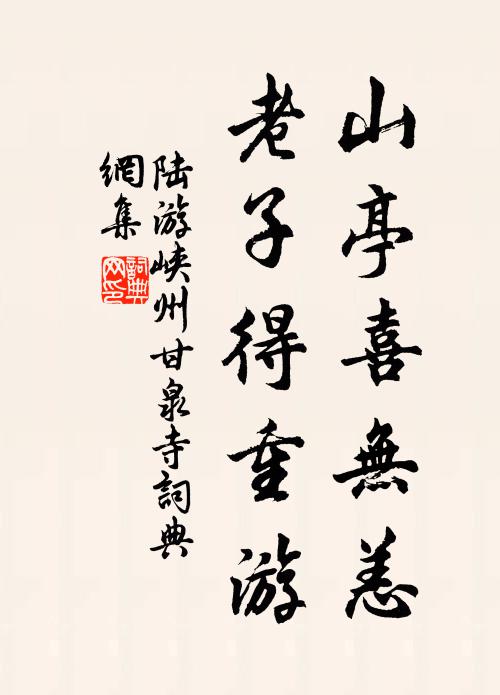 山亭喜無恙
老子得重游
陆游峡州甘泉寺詞典
網集
詞典
网印